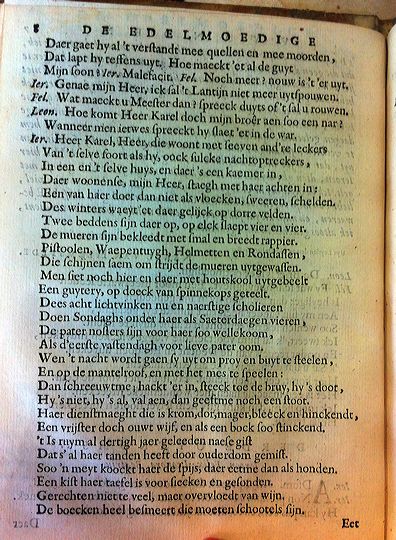 8 DE EDELMOEDIGE
Daer gaet hy al 't verstandt mee quellen en mee moorden,
Dat lapt hy teffens uyt. Hoe maeckt 'et al de guyt
Mijn soon? Ier. Malefacit. Fel. Noch meer? nouw is 't 'er uyt.
Ier. Genae mijn Heer, ick sal 't Lantijn niet meer uytspouwen.
Fel. Wat maeckt u Meester dan? spreeck duyts of 't sal u rouwen.
Leon. Hoe komt Heer Karel doch mijn broêr aen soo een nar?
Wanneer men ietwes spreeckt hy slaet 'et in de war.
Ier. Heer Karel, Heer, die woont met seeven and're leckers
Van 't selve soort als hy, oock sulcke nachtoptreckers,
In een en 't selve huys, en daer 's een kaemer in,
Daer woonense, mijn Heer, staegh met haer achten in:
Een van haer doet dan niet als vloecken, sweeren, schelden.
Des winters waeyt 'et daer gelijck op dorre velden.
Twee beddens sijn daer op, op elck slaept vier en vier.
De mueren sijn bekleedt met smal en breedt rappier.
Pistoolen, Waepentuygh, Helmetten en Rondassen,
Die schijnen saem om strijdt de mueren uytgewassen.
Men siet noch hier en daer met houtskool uytgebeelt
Een guytery, op doeck van spinnekops geteelt.
Dees acht lichtvinken nu en naerstige scholieren
Doen Sondaghs onder haer als Saeterdaegen vieren,
De pater nosters sijn voor haer soo wellekoom,
Als d'eerste vastendagh voor lieve pater oom.
Wen 't nacht wordt gaen sy uyt om proy en buyt te steelen,
En op de mantelroof, en met het mes te speelen:
Dan schreeuwtme; hackt 'er in, steeck toe de bruy, hy's doot,
Hy's niet, hy's al, val aen, dan geeftme noch een stoot.
Haer dienstmaeght die is krom, dor, mager, bleeck en hinckendt,
Een vrijster doch ouwt wijf, en als een bock soo stinckend.
't Is ruym al dertigh jaer geleeden nae se gist
Dat s' al haer tanden heeft door ouderdom gemist.
Soo 'n meyt koockt haer de spijs, daer eetme dan als honden.
Een kist haer taefel is voor siecken en gesonden.
Gerechten niet te veel, maer overvloedt van wijn.
De boecken heel besmeert die moeten schootels sijn.
Eet